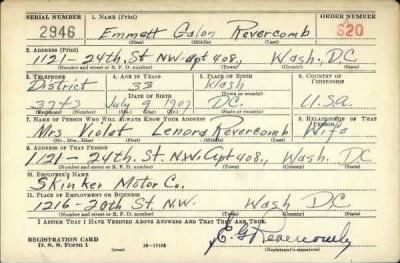 SERIAL NUMBER 1. NAME (Print) ORDER NUMBER
2946 Emmett Galon Revercomb 520
(First) (Middle) (Last)
2. ADDRESS (Print)
1121-24th. St N.W. apt 408, Wash. D.C.
(Number and street or R. F. D. number) (Town) (County) (State)
3. TELEPHONE 4. AGE IN YEARS 5. PLACE OF BIRTH 6. COUNTRY OF CITIZENSHIP
District 33 Wash
DATE OF BIRTH (Town or county)
July 9 1907 D.C. U.S.A.
(Exchange) (Number) (Mo.) (Day) (Yr.) (State or country)
7. NAME OF PERSON WHO WILL ALWAYS KNOW YOUR ADDRESS 8. RELATIONSHIP OF THAT PERSON
Mrs Violet Lenora Revercomb Wife
(Mr., Mrs., Miss) (First) (Middle) (Last)
9. ADDRESS OF THAT PERSON
1121-24th. St. N.W. Apt 408, Wash. D.C.
(Number and street or R. F. D. number) (Town) (County) (State)
10. EMPLOYER'S NAME
Skinker Motor Co.
11. PLACE OF EMPLOYMENT OR BUSINESS
1216-20th St. N.W. Wash D.C.
(Number and street or R. F. D. number) (Town) (County) (State)
I AFFIRM THAT I HAVE VERIFIED ABOVE ANSWERS AND THAT THEY ARE TRUE.
REGISTRATION CARD
D. S. S. Form 1 (over) 16-17105 E. G. Revercomb
(Registrant's signature)